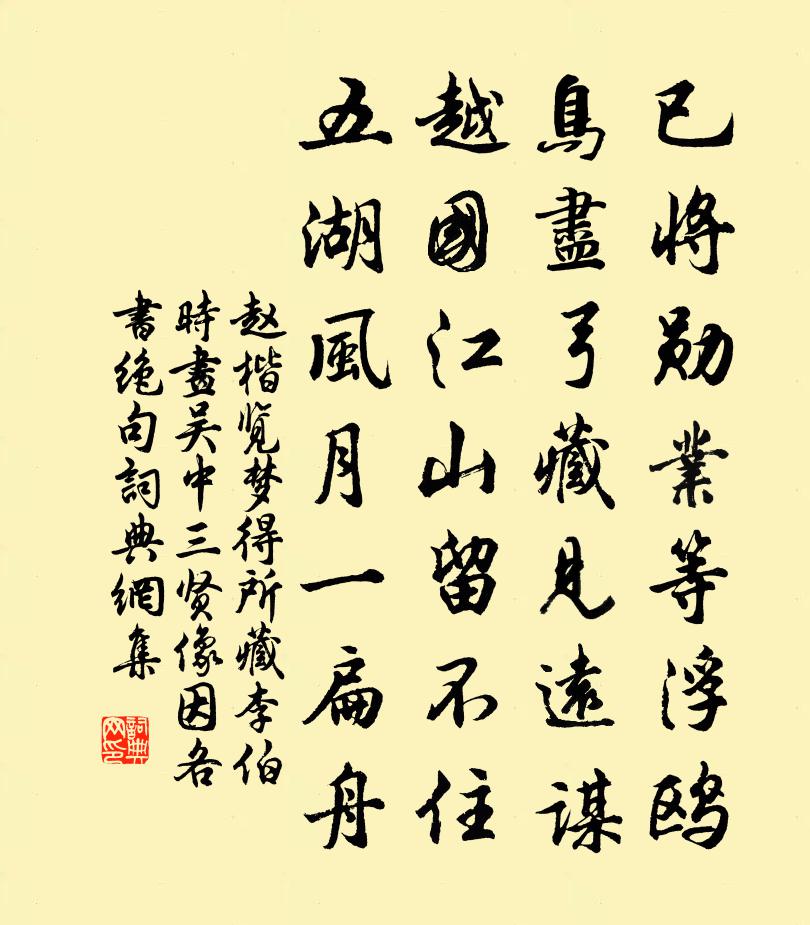 已将勋業等浮鸥
鳥盡弓藏見遠謀
越國江山留不住
五湖風月一扁舟
赵楷览梦得所藏李伯
時畫吴中三贤像因各
書绝句詞典網集
詞典
网印